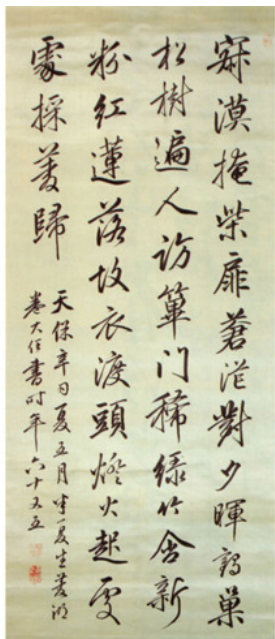 寂漠掩柴扉蒼茫對夕暉鶴巢
松樹遍人訪蓽門稀綠竹含新
粉紅蓮落故衣渡頭燈火起處
處採菱歸
天保辛丑夏五月半夏生菱湖
卷大任書時年六十又五